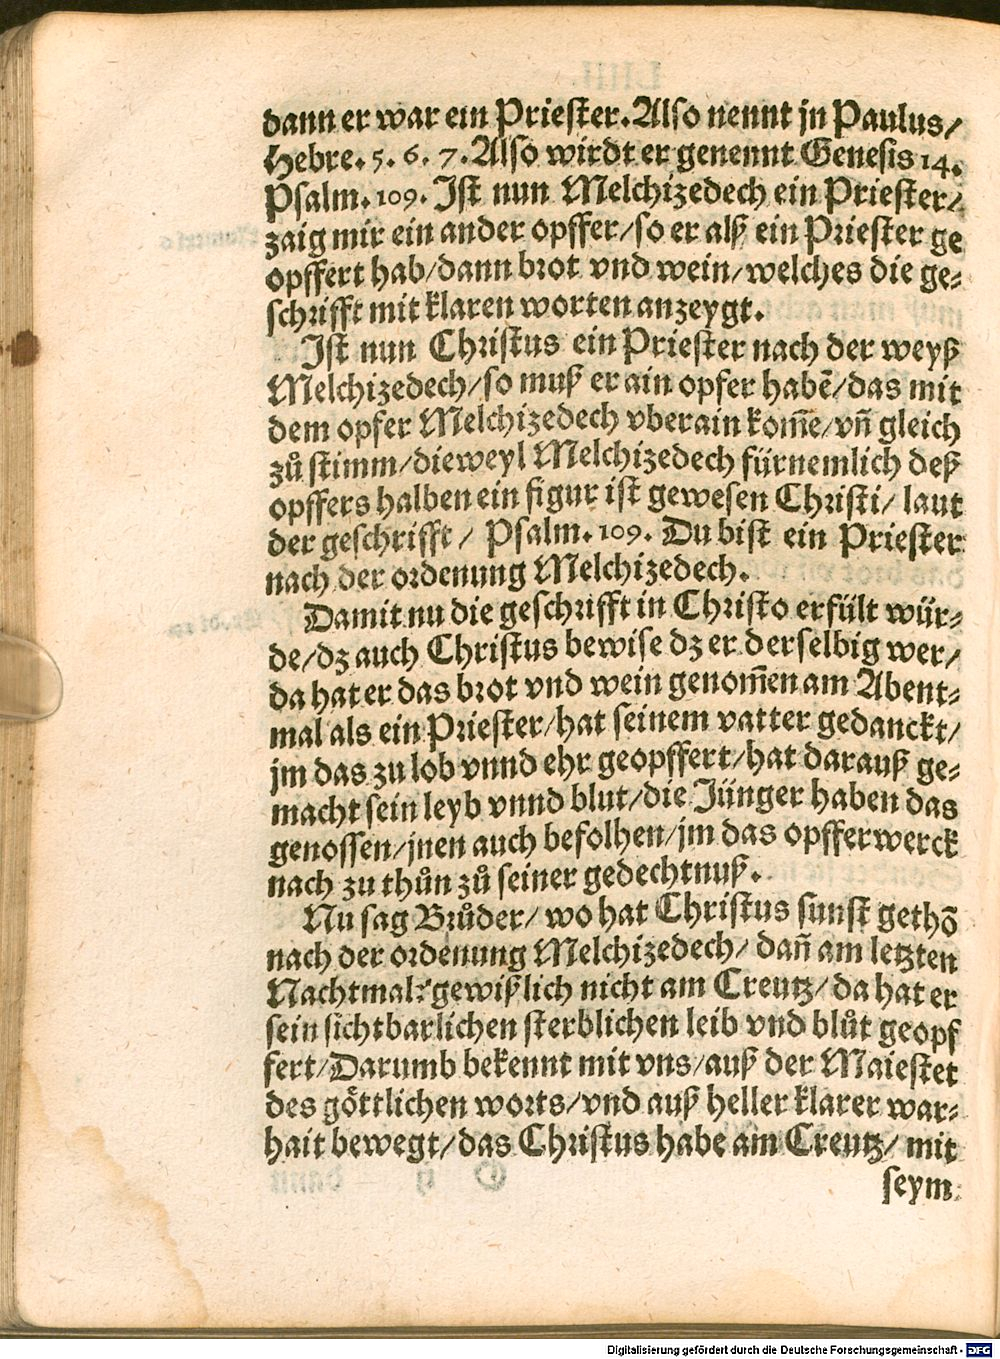 dann er war ein Priester. Also nennt jn Paulus/
Hebre. 5. 6. 7. Also wirdt er genennt Genesis 14.
Psalm. 109. Ist nun Melchizedech ein Priester/
zaig mir ein ander opffer/ so er alß ein Priester ge
opffert hab/ dann brot vnd wein/ welches die ge⸗
schrifft mit klaren worten anzeygt.
Ist nun Christus ein Priester nach der weyß
Melchizedech/ so muß er ain opfer habē/ das mit
dem opfer Melchizedech vberain kom̄e/ vn̄ gleich
zů stimm/ dieweyl Melchizedech fürnemlich deß
opffers halben ein figur ist gewesen Christi/ laut
der geschrifft/ Psalm. 109. Du bist ein Priester
nach der ordenung Melchizedech.
Damit nu die geschrifft in Christo erfült wür⸗
de/ dz auch Christus bewise dz er derselbig wer/
da hat er das brot vnd wein genom̄en am Abent⸗
mal als ein Priester/ hat seinem vatter gedanckt/
jm das zu lob vnnd ehr geopffert/ hat darauß ge⸗
macht sein leyb vnnd blut/ die Jünger haben das
genossen/ jnen auch befolhen/ jm das opfferwerck
nach zu thůn zů seiner gedechtnuß.
Nu sag Brůder/ wo hat Christus sunst gethō
nach der ordenung Melchizedech/ dan̄ am letzten
Nachtmal? gewißlich nicht am Creutz/ da hat er
sein sichtbarlichen sterblichen leib vnd blůt geopf
fert/ Darumb bekennt mit vns/ auß der Maiestet
des göttlichen worts/ vnd auß heller klarer war⸗
hait bewegt/ das Christus habe am Creutz/ mit
seym
Digitalisierung gefördert durch die Deutsche Forschungsgemeinschaft - DFG